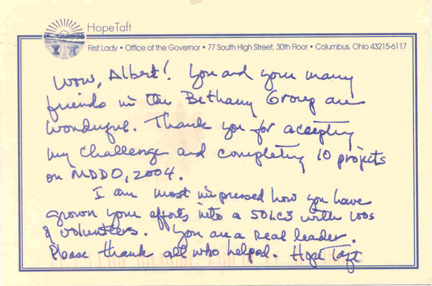 Hope Taft
First Lady • Office of the Governor • 77 South High Street, 30th Floor • Columbus, Ohio 43215-6117
Wow, Albert! You and your many
friends in the Bethany Group are
wonderful. Thank you for accepting
my challenge and completing 10 projects
on MDDO, 2004.
I am most impressed how you have
grown your efforts into a 501C3 with 100s
of volunteers. You are a real leader.
Please thank all who helped. Hope Taft